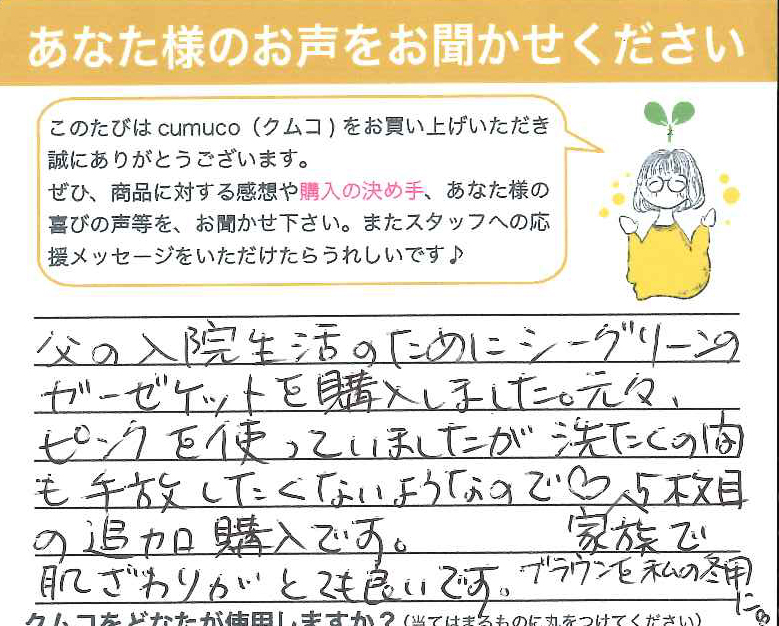 あなた様のお声をお聞かせください
このたびは cumuco（クムコ）をお買い上げいただき
誠にありがとうございます。
ぜひ、商品に対する感想や購入の決め手、あなた様の
喜びの声等を、お聞かせ下さい。またスタッフへの応
援メッセージをいただけたらうれしいです♪
父の入院生活のためにシーグリーンの
ガーゼケットを購入しました。元々、
ピンクを使っていましたが洗たくの間
も手放したくないようなので♡
家族で5枚目
の追加購入です。
肌ざわりがとても良いです。
ブラウンを私の冬用に。
クムコをどなたが使用しますか？（当てはまるものに丸をつけてください）